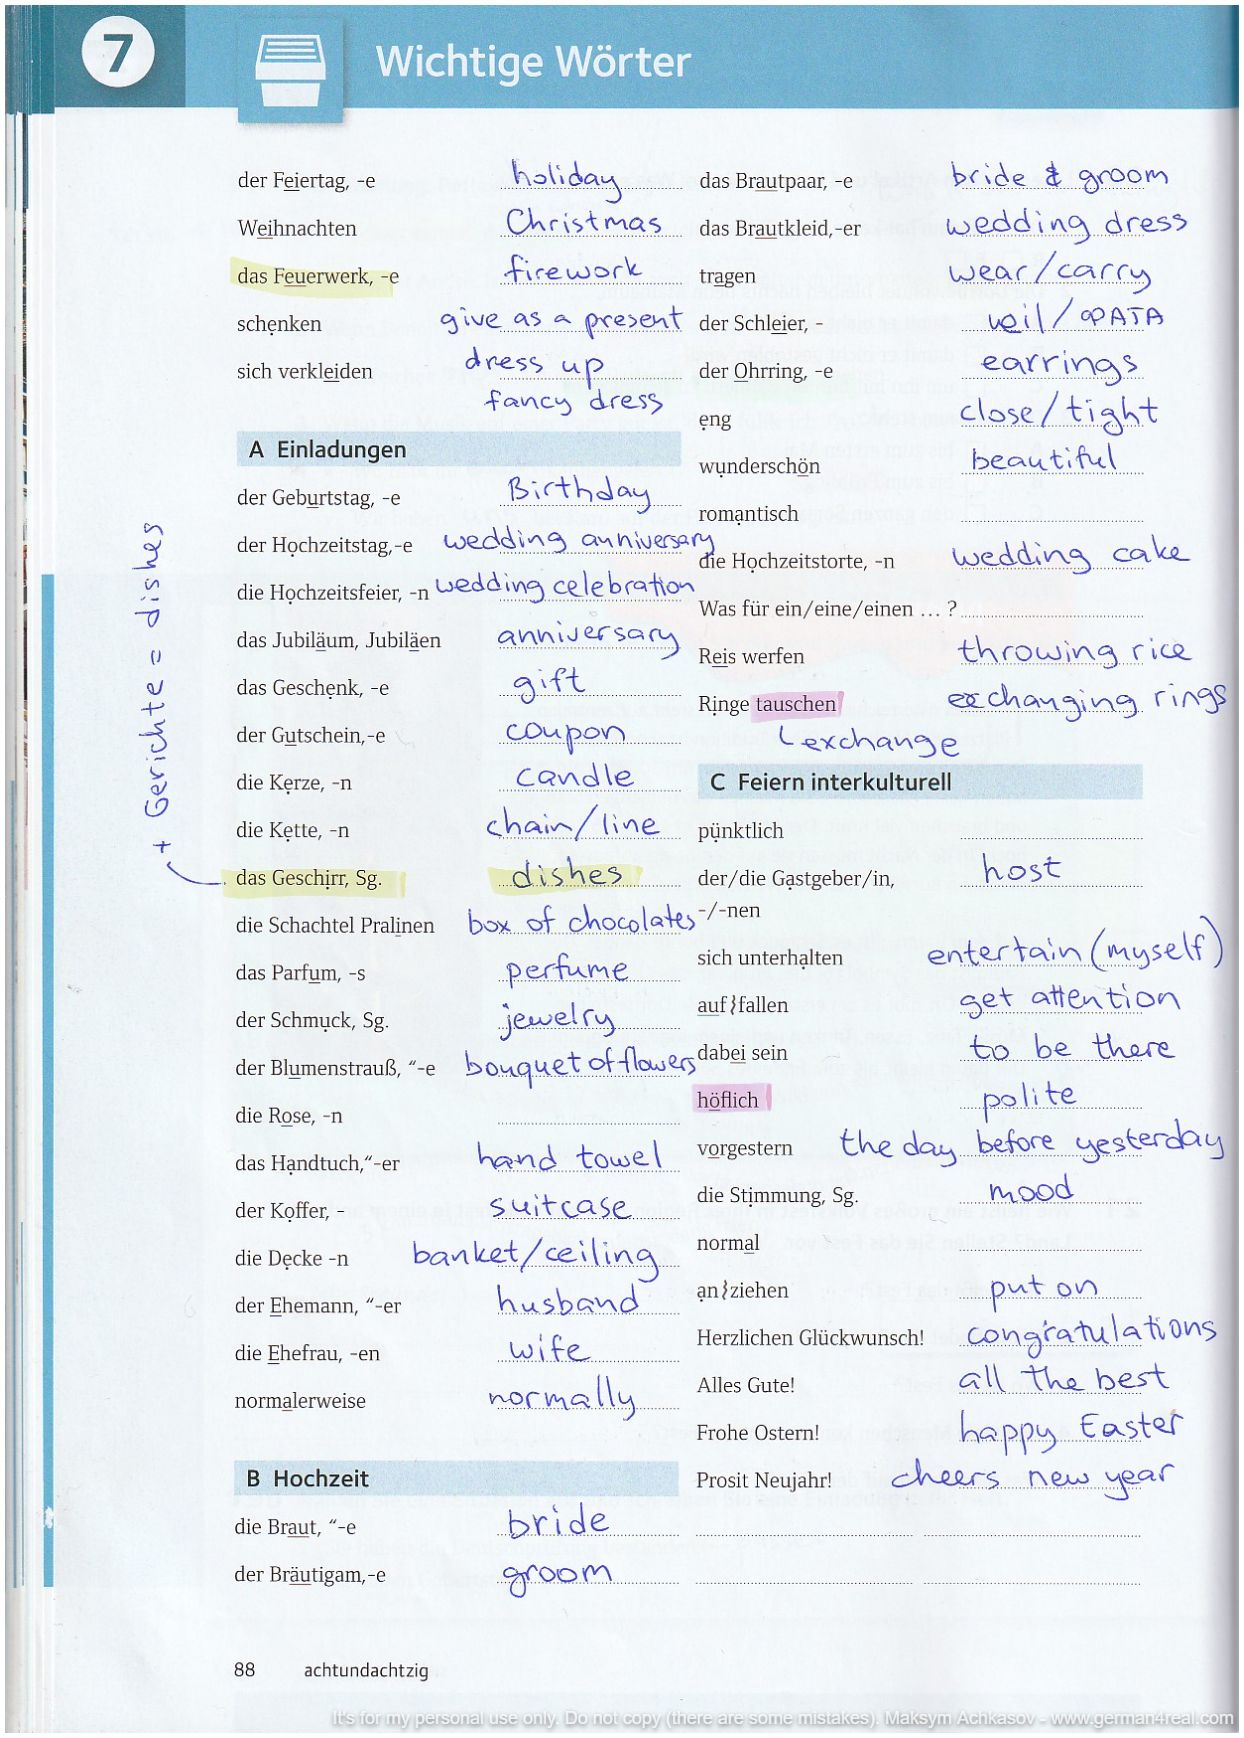 7 Wichtige Wörter
der Feiertag, -e holiday
Weihnachten Christmas
das Feuerwerk, -e firework
schenken give as a present
sich verkleiden dress up
fancy dress
A Einladungen
der Geburtstag, -e Birthday
der Hochzeitstag,-e wedding anniversary
die Hochzeitsfeier, -n wedding celebration
das Jubiläum, Jubiläen anniversary
das Geschenk, -e gift
der Gutschein,-e coupon
die Kerze, -n candle
die Kette, -n chain/line
das Geschirr, Sg. dishes
+ Gerichte = dishes
die Schachtel Pralinen box of chocolates
das Parfum, -s perfume
der Schmuck, Sg. jewelry
der Blumenstrauß, “-e bouquet of flowers
die Rose, -n
das Handtuch,“-er hand towel
der Koffer, - suitcase
die Decke -n banket/ceiling
der Ehemann, “-er husband
die Ehefrau, -en wife
normalerweise normally
B Hochzeit
die Braut, “-e bride
der Bräutigam,-e groom
das Brautpaar, -e bride & groom
das Brautkleid,-er wedding dress
tragen wear/carry
der Schleier, - veil/ФАТА
der Ohrring, -e earrings
eng close/tight
wunderschön beautiful
romantisch
die Hochzeitstorte, -n wedding cake
Was für ein/eine/einen ... ?
Reis werfen throwing rice
Ringe tauschen exchanging rings
exchange
C Feiern interkulturell
pünktlich
der/die Gastgeber/in, host
-/-nen
sich unterhalten entertain (myself)
auf}fallen get attention
dabei sein to be there
höflich polite
vorgestern the day before yesterday
die Stimmung, Sg. mood
normal
an}ziehen put on
Herzlichen Glückwunsch! congratulations
Alles Gute! all the best
Frohe Ostern! happy Easter
Prosit Neujahr! cheers new year
88 achtundachtzig
It's for my personal use only. Do not copy (there are some mistakes). Maksym Achkasov - www.german4real.com